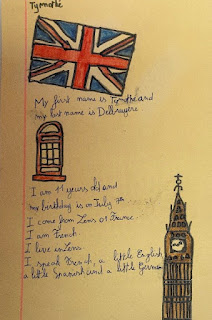 Tymothé
My first name is Tymothé and
my last name is Delbruyère
I am 11 years old and
my birthday is in July 7th
I come from Lens or France.
I am French.
I live in Lens
I speak French, a little English
a little Spanish and a little German